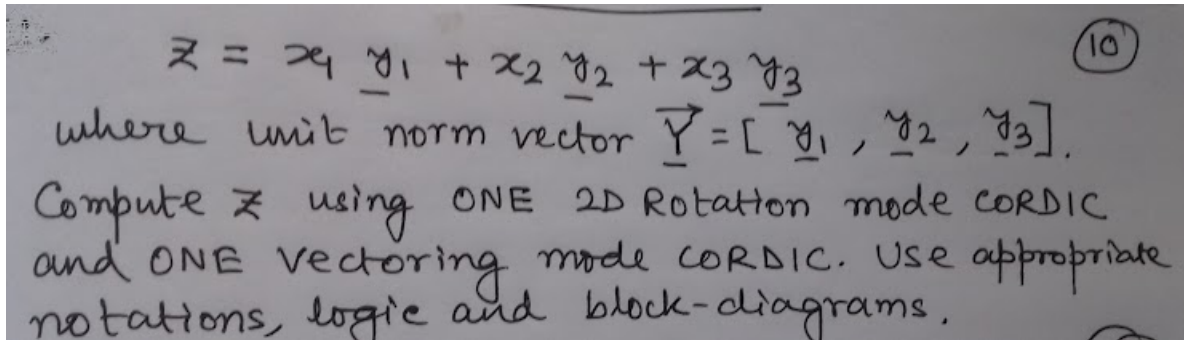 z = x1 y1 + x2 y2 + x3 y3 (10)
where unit norm vector Y = [ y1 , y2 , y3 ].
Compute z using ONE 2D Rotation mode CORDIC
and ONE vectoring mode CORDIC. Use appropriate
notations, logic and block-diagrams.